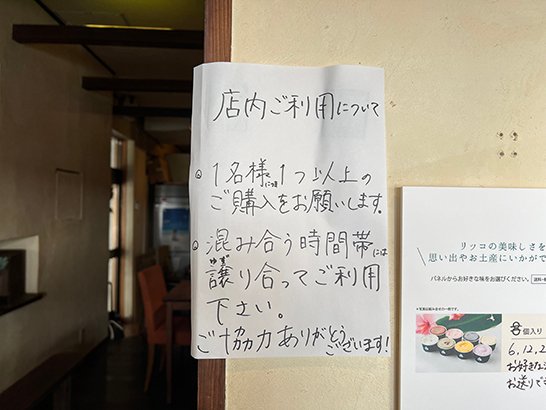 店内ご利用について
◎1名様につき1つ以上の
ご購入をお願いします。
◎混み合う時間帯には
譲り合ってご利用
ゆず
下さい。
ご協力ありがとう
ございます!
リッコの美味しさを
思い出やお土産にいかがで
パネルからお好きな味をお選びください。
8個入り
6,12,2
お好きな
お送りでき